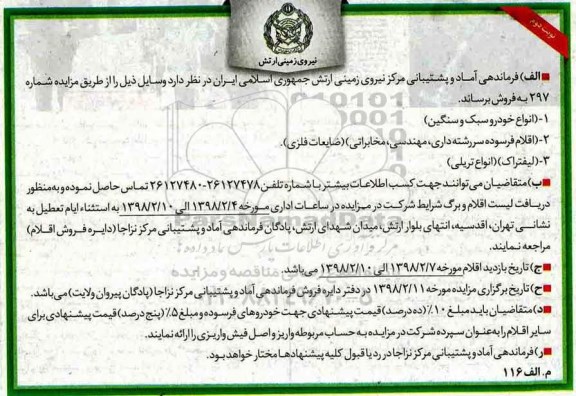 نوبت دوم
نیروی زمینی ارتش
الف) فرماندهی آماد و پشتیبانی مرکز نیروی زمینی ارتش جمهوری اسلامی ایران در نظر دارد وسایل ذیل را از طریق مزایده شماره
۲۹۷ به فروش برساند.
۱-(انواع خودرو سبک و سنگین)
۲-(اقلام فرسوده سررشته داری، مهندسی، مخابراتی)(ضایعات فلزی).
۳-(لیفتراک)(انواع تریلی)
ب) متقاضیان می توانند جهت کسب اطلاعات بیشتر با شماره تلفن ۲۶۱۲۷۴۷۸-۲۶۱۲۷۴۸۰ تماس حاصل نموده و به منظور
دریافت لیست اقلام و برگ شرایط شرکت در مزایده در ساعات اداری مورخه ۱۳۹۸/۲/۴ الی ۱۳۹۸/۲/۱۰ به استثناء ایام تعطیل به
نشانی تهران، اقدسیه، انتهای بلوار ارتش، میدان شهدای ارتش، پادگان فرماندهی آماد و پشتیبانی مرکز نزاجا (دایره فروش اقلام)
مراجعه نمایند.
ج) تاریخ بازدید اقلام مورخه ۱۳۹۸/۲/۷ الی ۱۳۹۸/۲/۱۰ می باشد.
ح) تاریخ برگزاری مزایده مورخه ۱۳۹۸/۲/۱۱ در دفتر دایره فروش فرماندهی آماد و پشتیبانی مرکز نزاجا (پادگان پیروان ولایت) می باشد.
د) متقاضیان باید مبلغ ۱۰٪ (ده درصد) قیمت پیشنهادی جهت خودروهای فرسوده و مبلغ ۵٪ (پنج درصد) قیمت پیشنهادی برای
سایر اقلام را به عنوان سپرده شرکت در مزایده به حساب مربوطه واریز و اصل فیش واریزی را ارائه نمایند.
ر) فرماندهی آماد و پشتیبانی مرکز نزاجا در رد یا قبول کلیه پیشنهادها مختار خواهد بود.
م. الف ۱۱۶